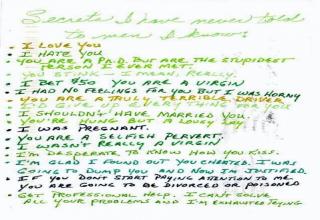 Secrets I have never told
to men I know:
• I LOVE YOU
• I HATE YOU
• YOU ARE A PH.D. BUT ARE THE STUPIDEST
PERSON I EVER MET.
• YOU STINK - I MEAN, REALLY.
• I BET $50 YOU ARE A VIRGIN
• I HAD NO FEELINGS FOR YOU BUT I WAS HORNY
• YOU ARE A TRULY TERRIBLE DRIVER
• I'D GIVE UP EVERYTHING FOR YOU
• I SHOULDN'T HAVE MARRIED YOU.
• YOU'RE HUNG BUT A LOUSY LAY
• I WAS PREGNANT.
• YOU ARE A SELFISH PERVERT.
• I WASN'T REALLY A VIRGIN
• I'M DESPERATE TO KNOW HOW YOU KISS.
• I'M GLAD I FOUND OUT YOU CHEATED. I WAS
GOING TO DUMP YOU AND NOW I'M JUSTIFIED.
• IF YOU DON'T START PAYING ATTENTION TO ME
YOU ARE GOING TO BE DIVORCED OR POISONED
• GET PROFESSIONAL HELP. I CAN'T SOLVE
ALL YOUR PROBLEMS AND I'M EXHAUSTED TRYING